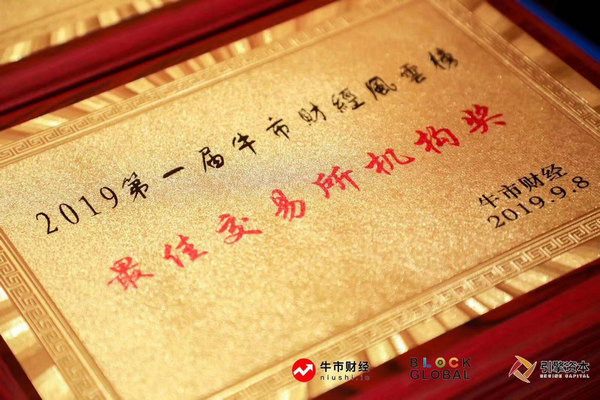 2019第一届牛市财經風雲榜
最佳交易所机构奖
牛市财经
2019.9.8
牛市财经
niushi.io
BLOCK
GLOBAL
引擎资本
ENGINE CAPITAL